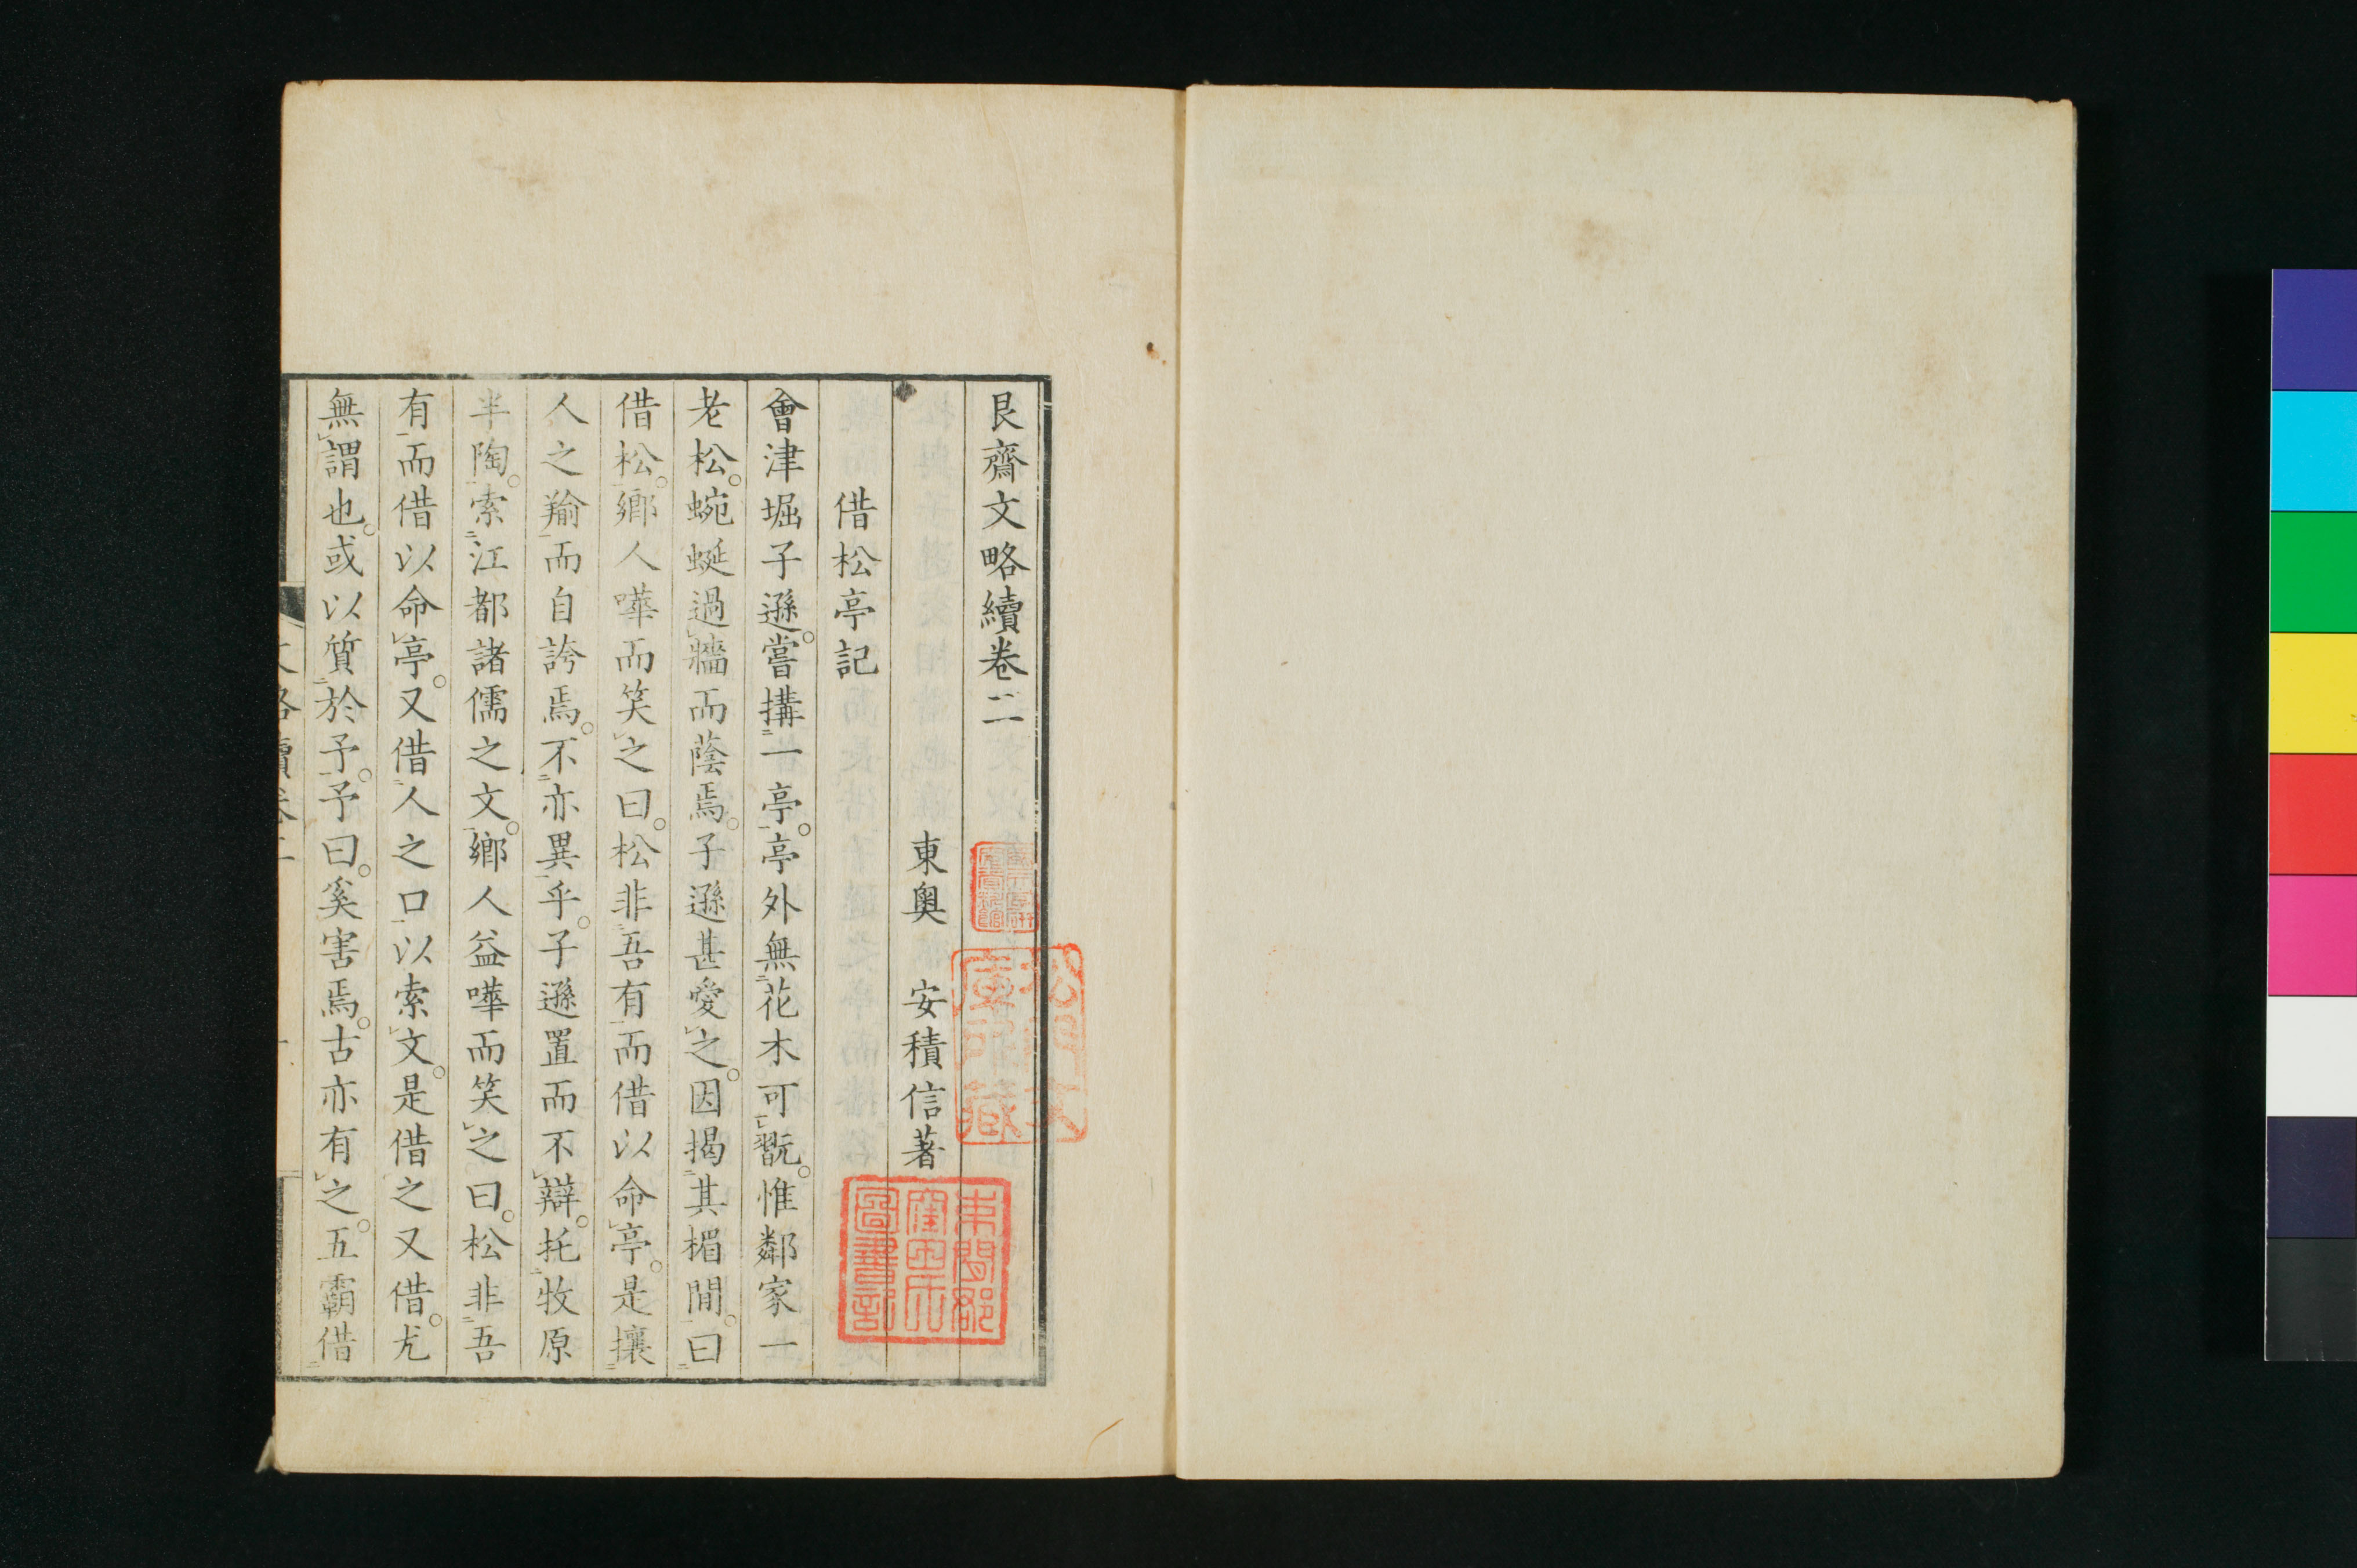 艮齋文略續卷二
東奧 安積信著
借松亭記
會津堀子遜。嘗搆一亭。亭外無花木可翫。惟鄰家一
老松。蜿蜒過牆而蔭焉。子遜甚愛之。因揭其楣間。曰
借松。鄉人嘩而笑之曰。松非吾有而借以命亭。是攘
人之羭而自誇焉。不亦異乎。子遜置而不辯。托牧原
半陶。索江都諸儒之文。鄉人益嘩而笑之曰。松非吾
有而借以命亭。又借人之口以索文。是借之又借。尤
無謂也。或以質於予。予曰。奚害焉。古亦有之。五霸借
文略續卷二
松門文
庫印藏
圖書部